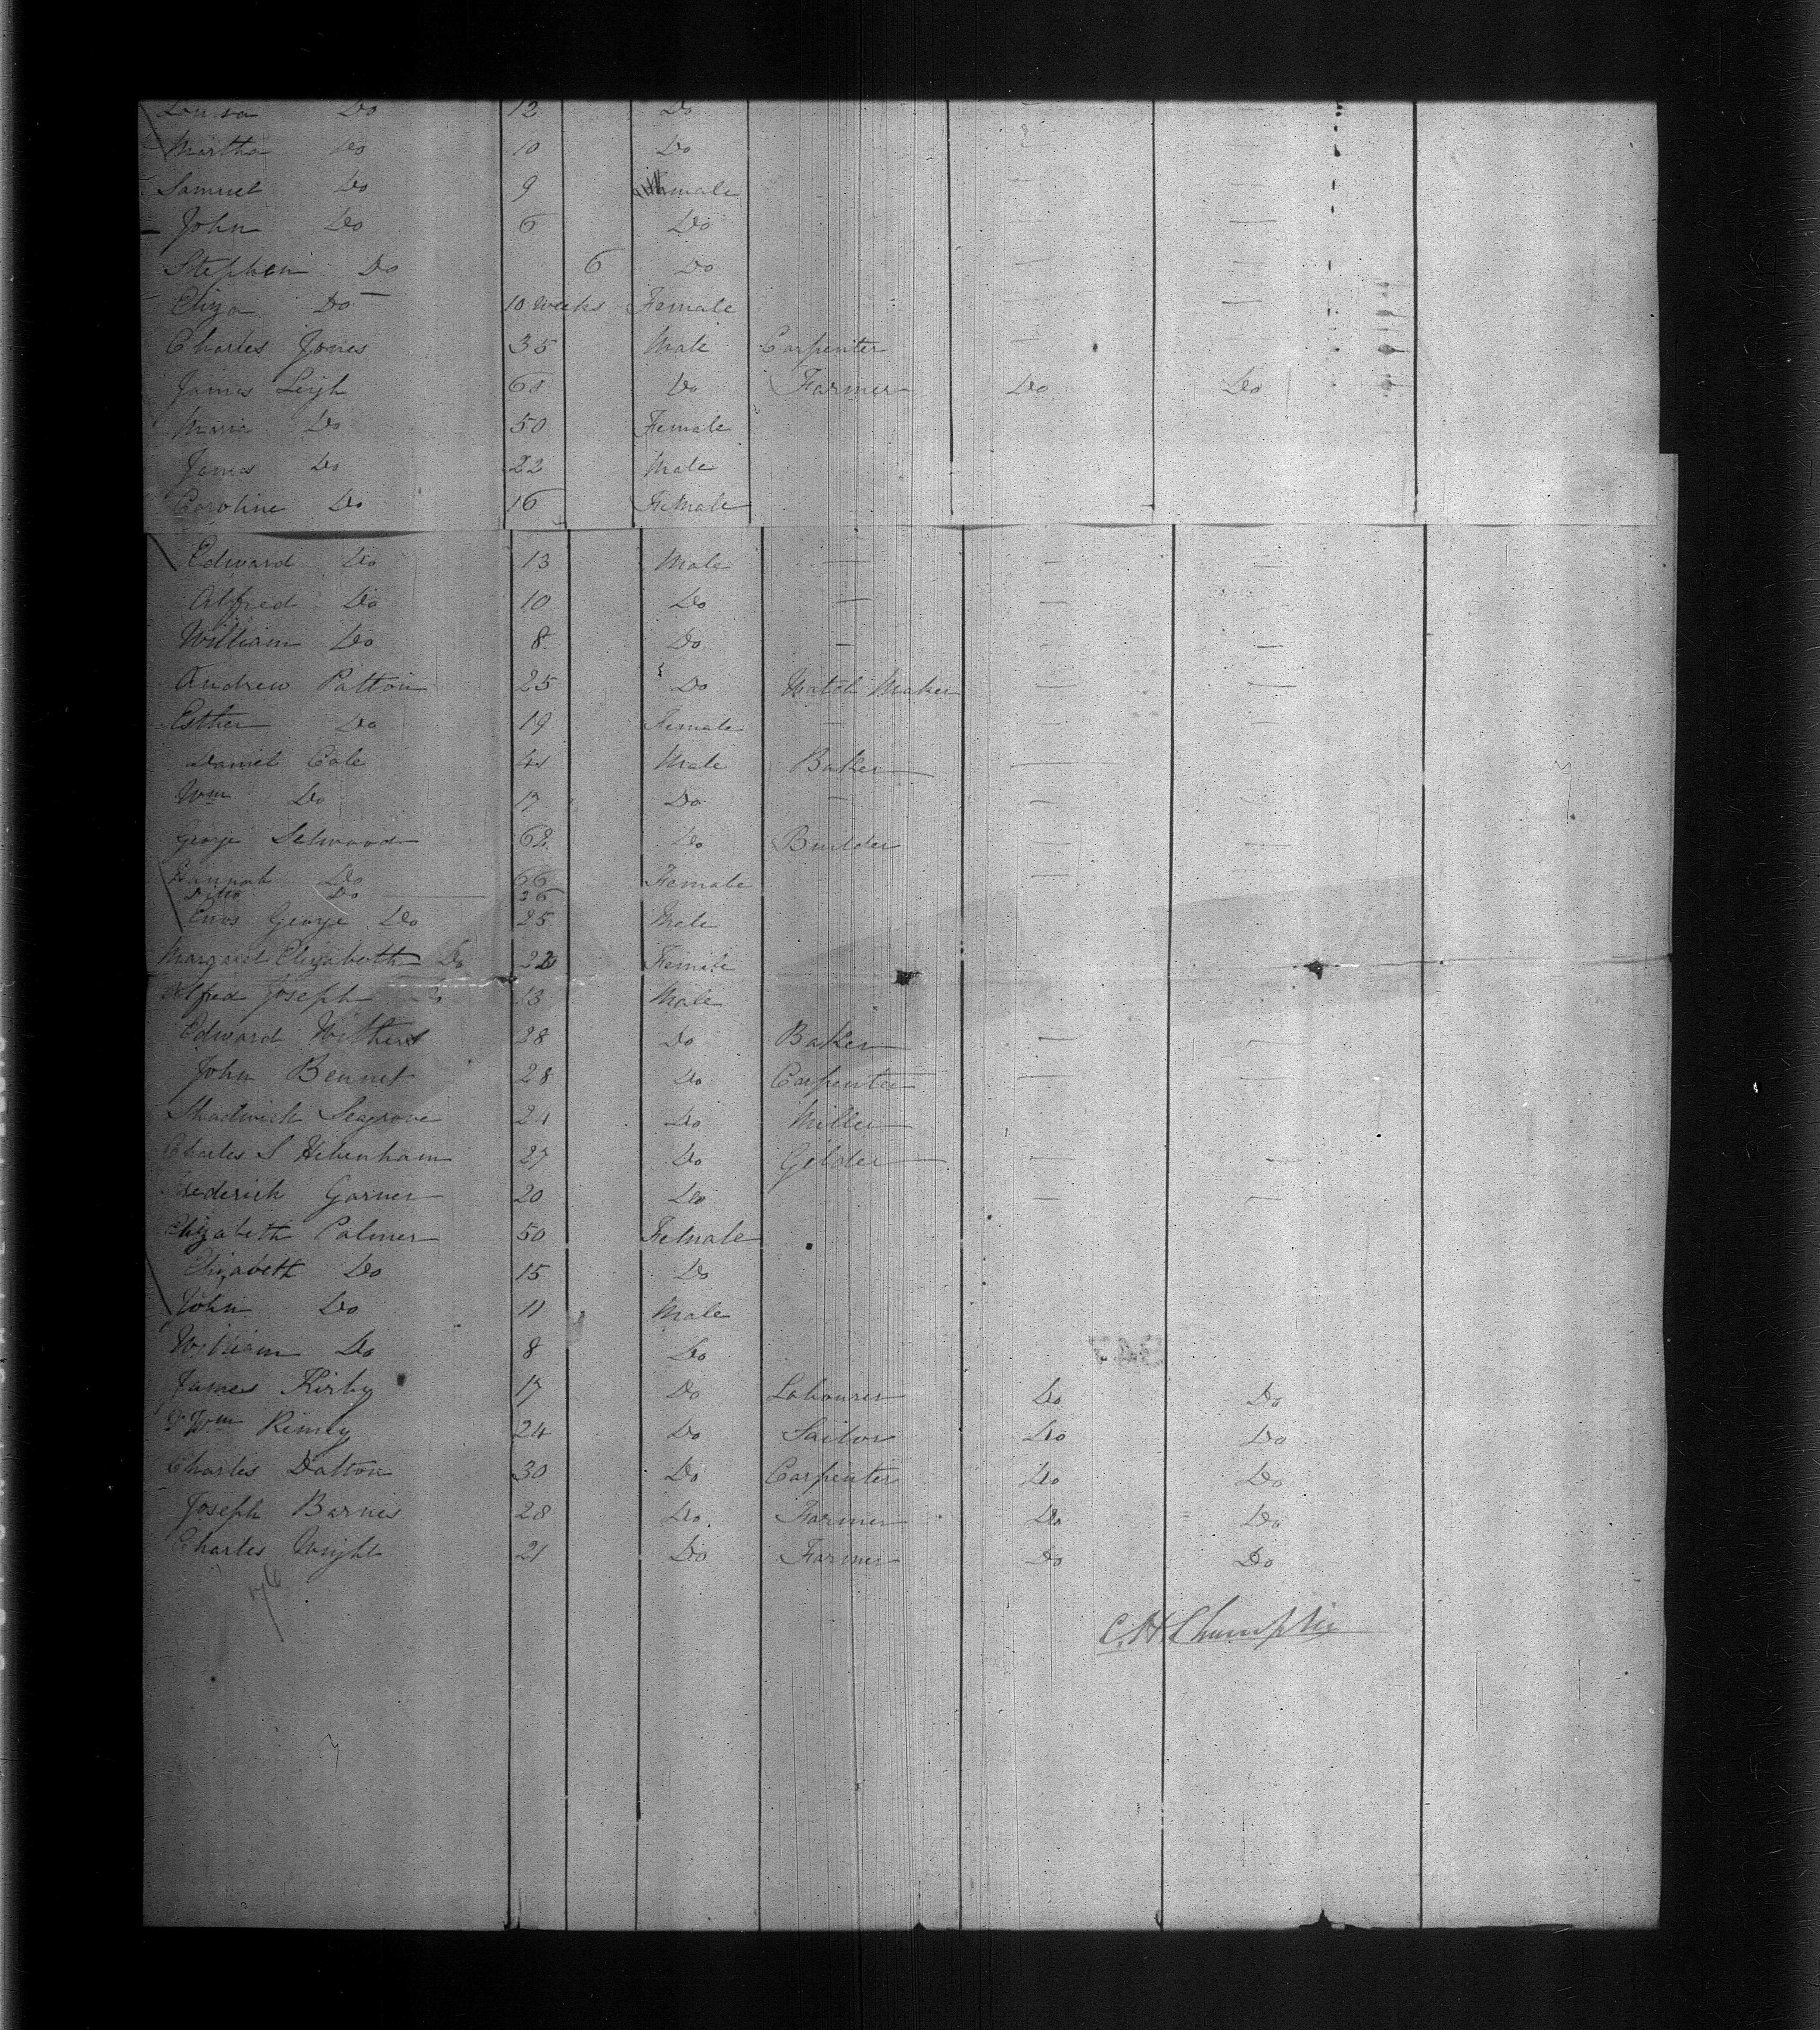 Louisa Do 12 Do
Martha Do 10 Do
Samuel Do 9 male
John Do 6 Do
Stephen Do 6 Do
Eliza Do 10 weeks Female
Charles Jones 35 Male Carpenter
James Leigh 60 Do Farmer Do Do
Maria Do 50 Female
James Do 22 Male
Caroline Do 16 Female
Edward Do 13 Male
Alfred Do 10 Do
William Do 8 Do
Andrew Patton 25 Do Watch Maker
Esther Do 19 Female
Daniel Cole 41 Male Baker
Wm Do 17 Do
George Selwood 62 Do Builder
Hannah Do 66 Female
Ditto Do 26
Enos George Do 25 Male
Margaret Elizabeth Do 22 Female
Alfred Joseph Do 13 Male
Edward Withers 28 Do Baker
John Bennet 28 Do Carpenter
Shadwick Seagrove 21 Do Miller
Charles S Hebenham 27 Do Gilder
Frederick Garner 20 Do
Elizabeth Palmer 50 Female
Elizabeth Do 15 Do
John Do 11 Male
William Do 8 Do
James Kirby 17 Do Labourer Do Do
Wm Rimey 24 Do Sailor Do Do
Charles Dalton 30 Do Carpenter Do Do
Joseph Barnes 28 Do Farmer Do Do
Charles Wright 21 Do Farmer Do Do
C. H. Champlin